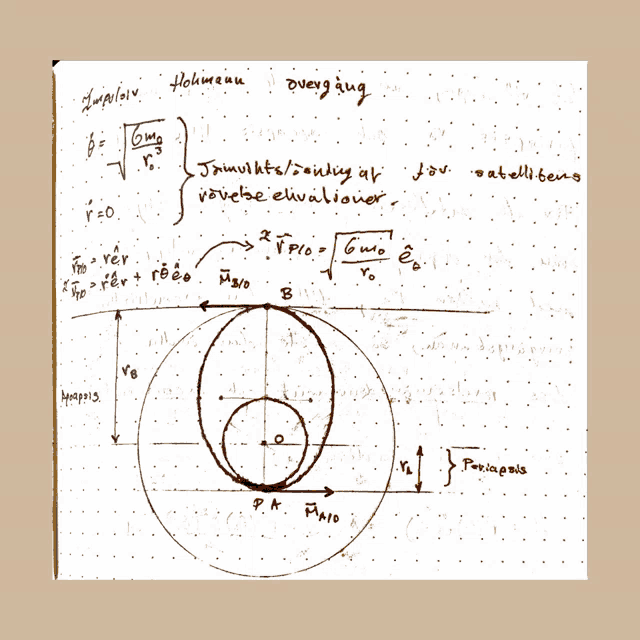 Impulsiv Hohmann övergång
θ̇ = √(Gm₀/r₀³)
ṙ = 0
Jämviktslösningar för satellitens
rörelse ekvationer.
r̄P/O = r êr
ᶻr̄̇P/O = ṙ êr + r θ̇ êθ
ᶻr̄̇P/O = √(Gm₀/r₀) êθ
M̄B/O
B
rB
Apoapsis
O
rA
} Periapsis
P A
M̄A/O